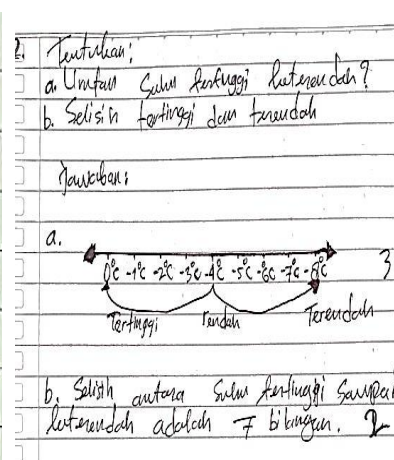 2. Tentukan:
a. Urutan Suhu tertinggi keterendah?
b. Selisih tertinggi dan terendah
Jawaban:
a.
0°C -1°C -2°C -3°C -4°C -5°C -6°C -7°C -8°C 3
Tertinggi rendah Terendah
b. Selisih antara Suhu tertinggi Sampai
keterendah adalah 7 bilangan. 2